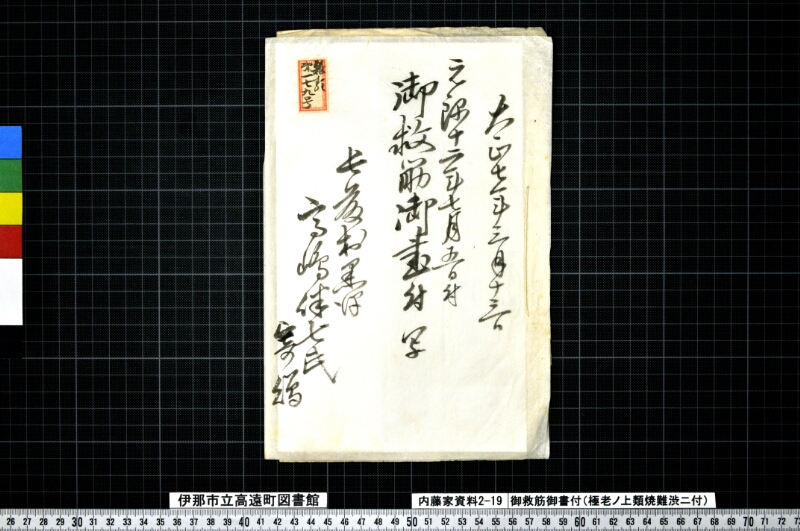 大正七年三月十三日
元禄十二年七月五日付
御救筋御書付写
長藤村黒沢
高嶋伴七氏
寄贈
雑記
第一七九号
伊那市立高遠町図書館
内藤家資料2-19
御救筋御書付(極老ノ上類焼難渋ニ付)
26 27 28 29 30 31 32 33 34 35 36 37 38 39 40 41 42 43 44 45 46 47 48 49 50 51 52 53 54 55 56 57 58 59 60 61 62 63 64 65 66 67 68 69 70 71 72 73